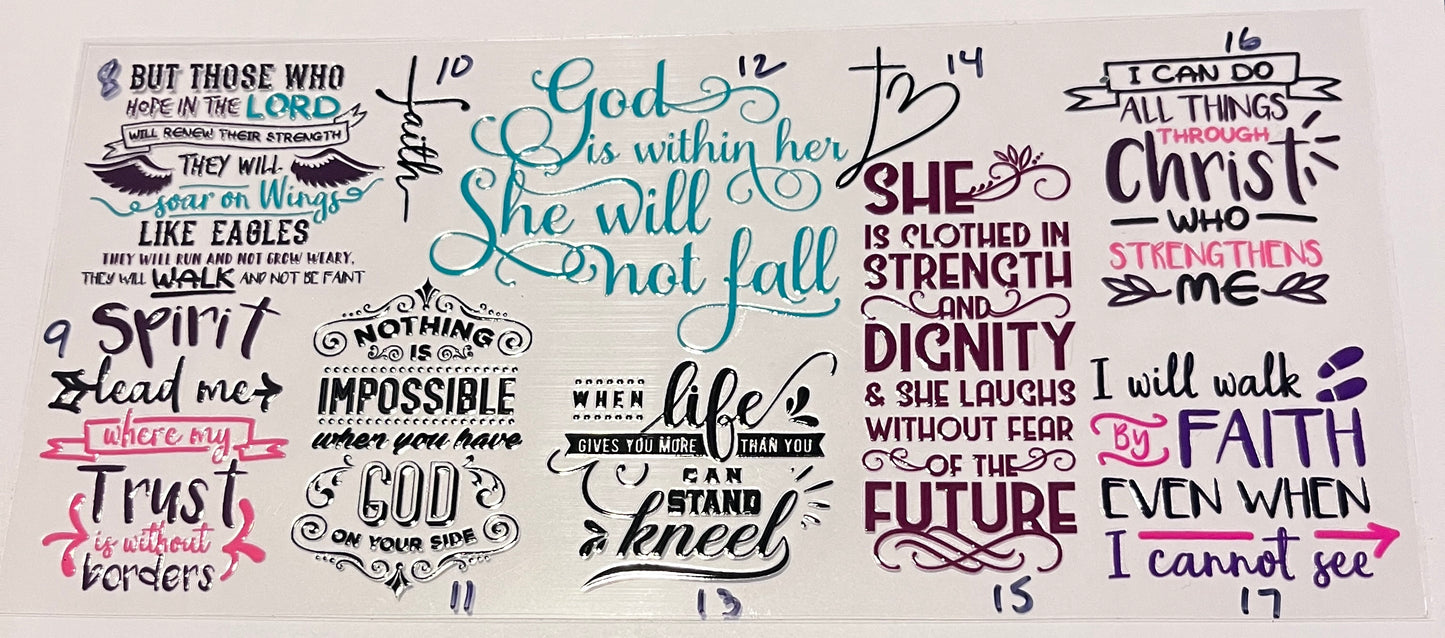 8
BUT THOSE WHO
HOPE IN THE LORD
WILL RENEW THEIR STRENGTH
THEY WILL
soar on Wings
LIKE EAGLES
THEY WILL RUN AND NOT GROW WEARY,
THEY WILL WALK AND NOT BE FAINT
9
Spirit
lead me
where my
Trust
is without
borders
10
Faith
NOTHING
IS
IMPOSSIBLE
when you have
GOD
ON YOUR SIDE
11
12
God
is within her
She will
not fall
WHEN life
GIVES YOU MORE THAN YOU
CAN
STAND
kneel
13
14
SHE
IS CLOTHED IN
STRENGTH
AND
DIGNITY
& SHE LAUGHS
WITHOUT FEAR
OF THE
FUTURE
15
16
I CAN DO
ALL THINGS
THROUGH
Christ
WHO
STRENGTHENS
ME
I will walk
By FAITH
EVEN WHEN
I cannot see
17